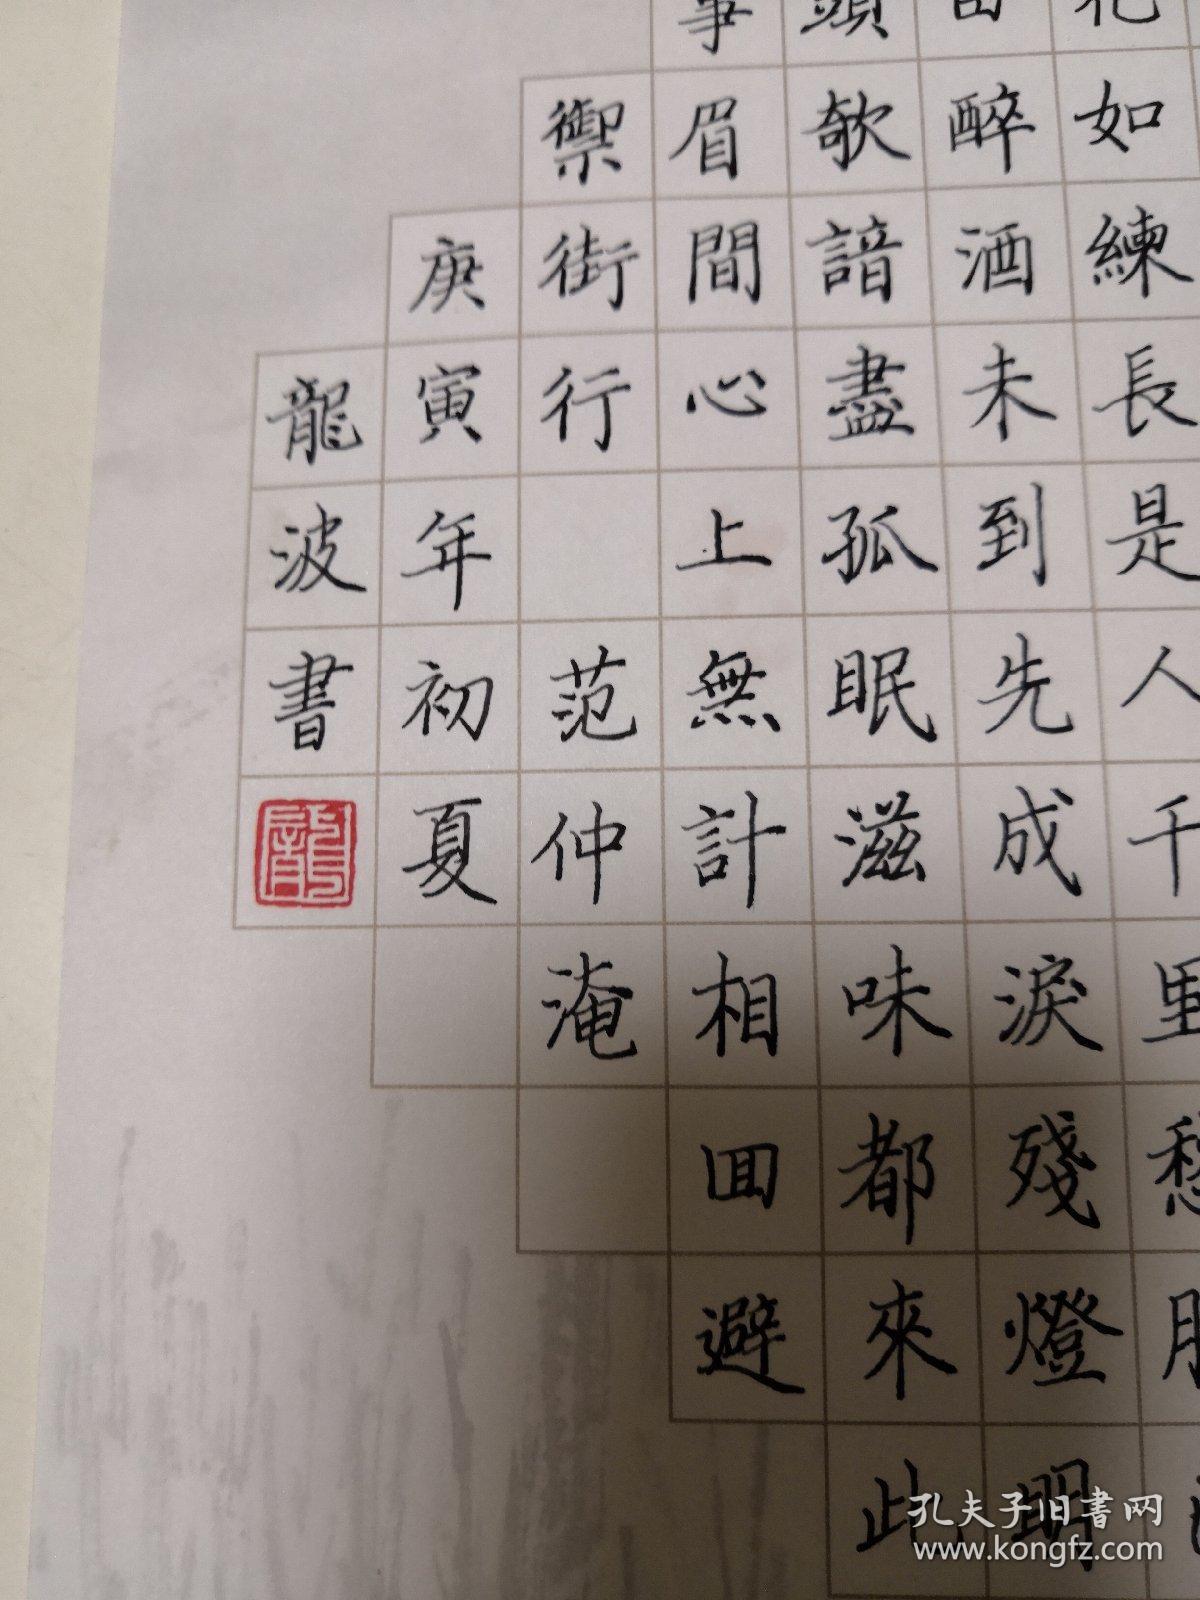 如練長是人千里愁
醉酒未到先成淚殘燈明
頭欹諳盡孤眠滋味都來此
事眉間心上無計相回避
禦街行 范仲淹
庚寅年初夏
龍波書
龍
孔夫子旧書网
www.kongfz.com